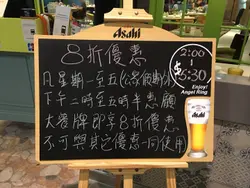 Asahi
8折優惠
凡星期一至五(公眾假期)外
下午二時至五時半惠顧
大餐牌即享8折優惠
不可與其它優惠一同使用
2:00
5:30
Enjoy!
Angel Ring
Asahi